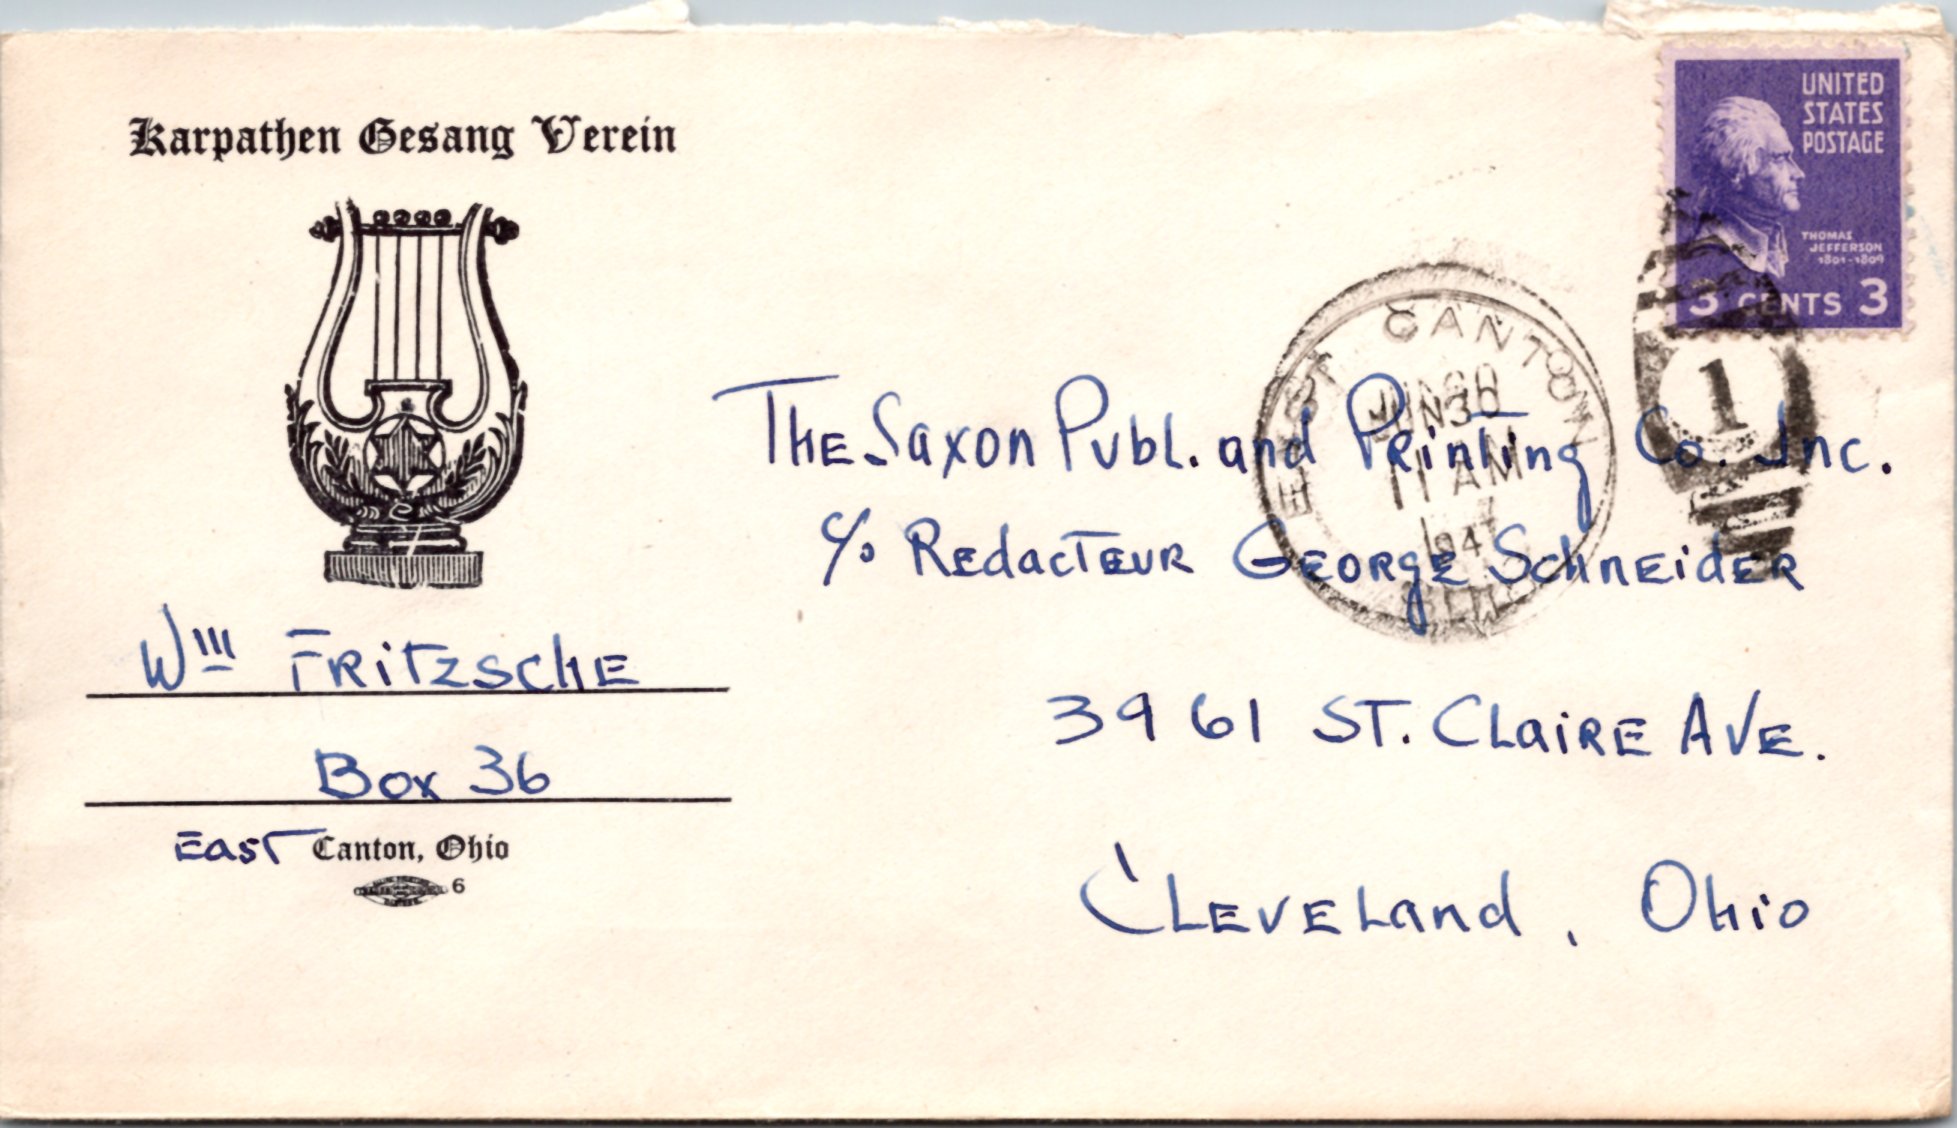 Karpathen Gesang Verein
Wm Fritzsche
Box 36
East Canton, Ohio
6
UNITED
STATES
POSTAGE
THOMAS
JEFFERSON
1801-1809
3 CENTS 3
EAST CANTON
JUN 30
11 AM
1947
OHIO
1
The Saxon Publ. and Printing Co. Inc.
c/o Redacteur George Schneider
3961 St. Claire Ave.
Cleveland, Ohio